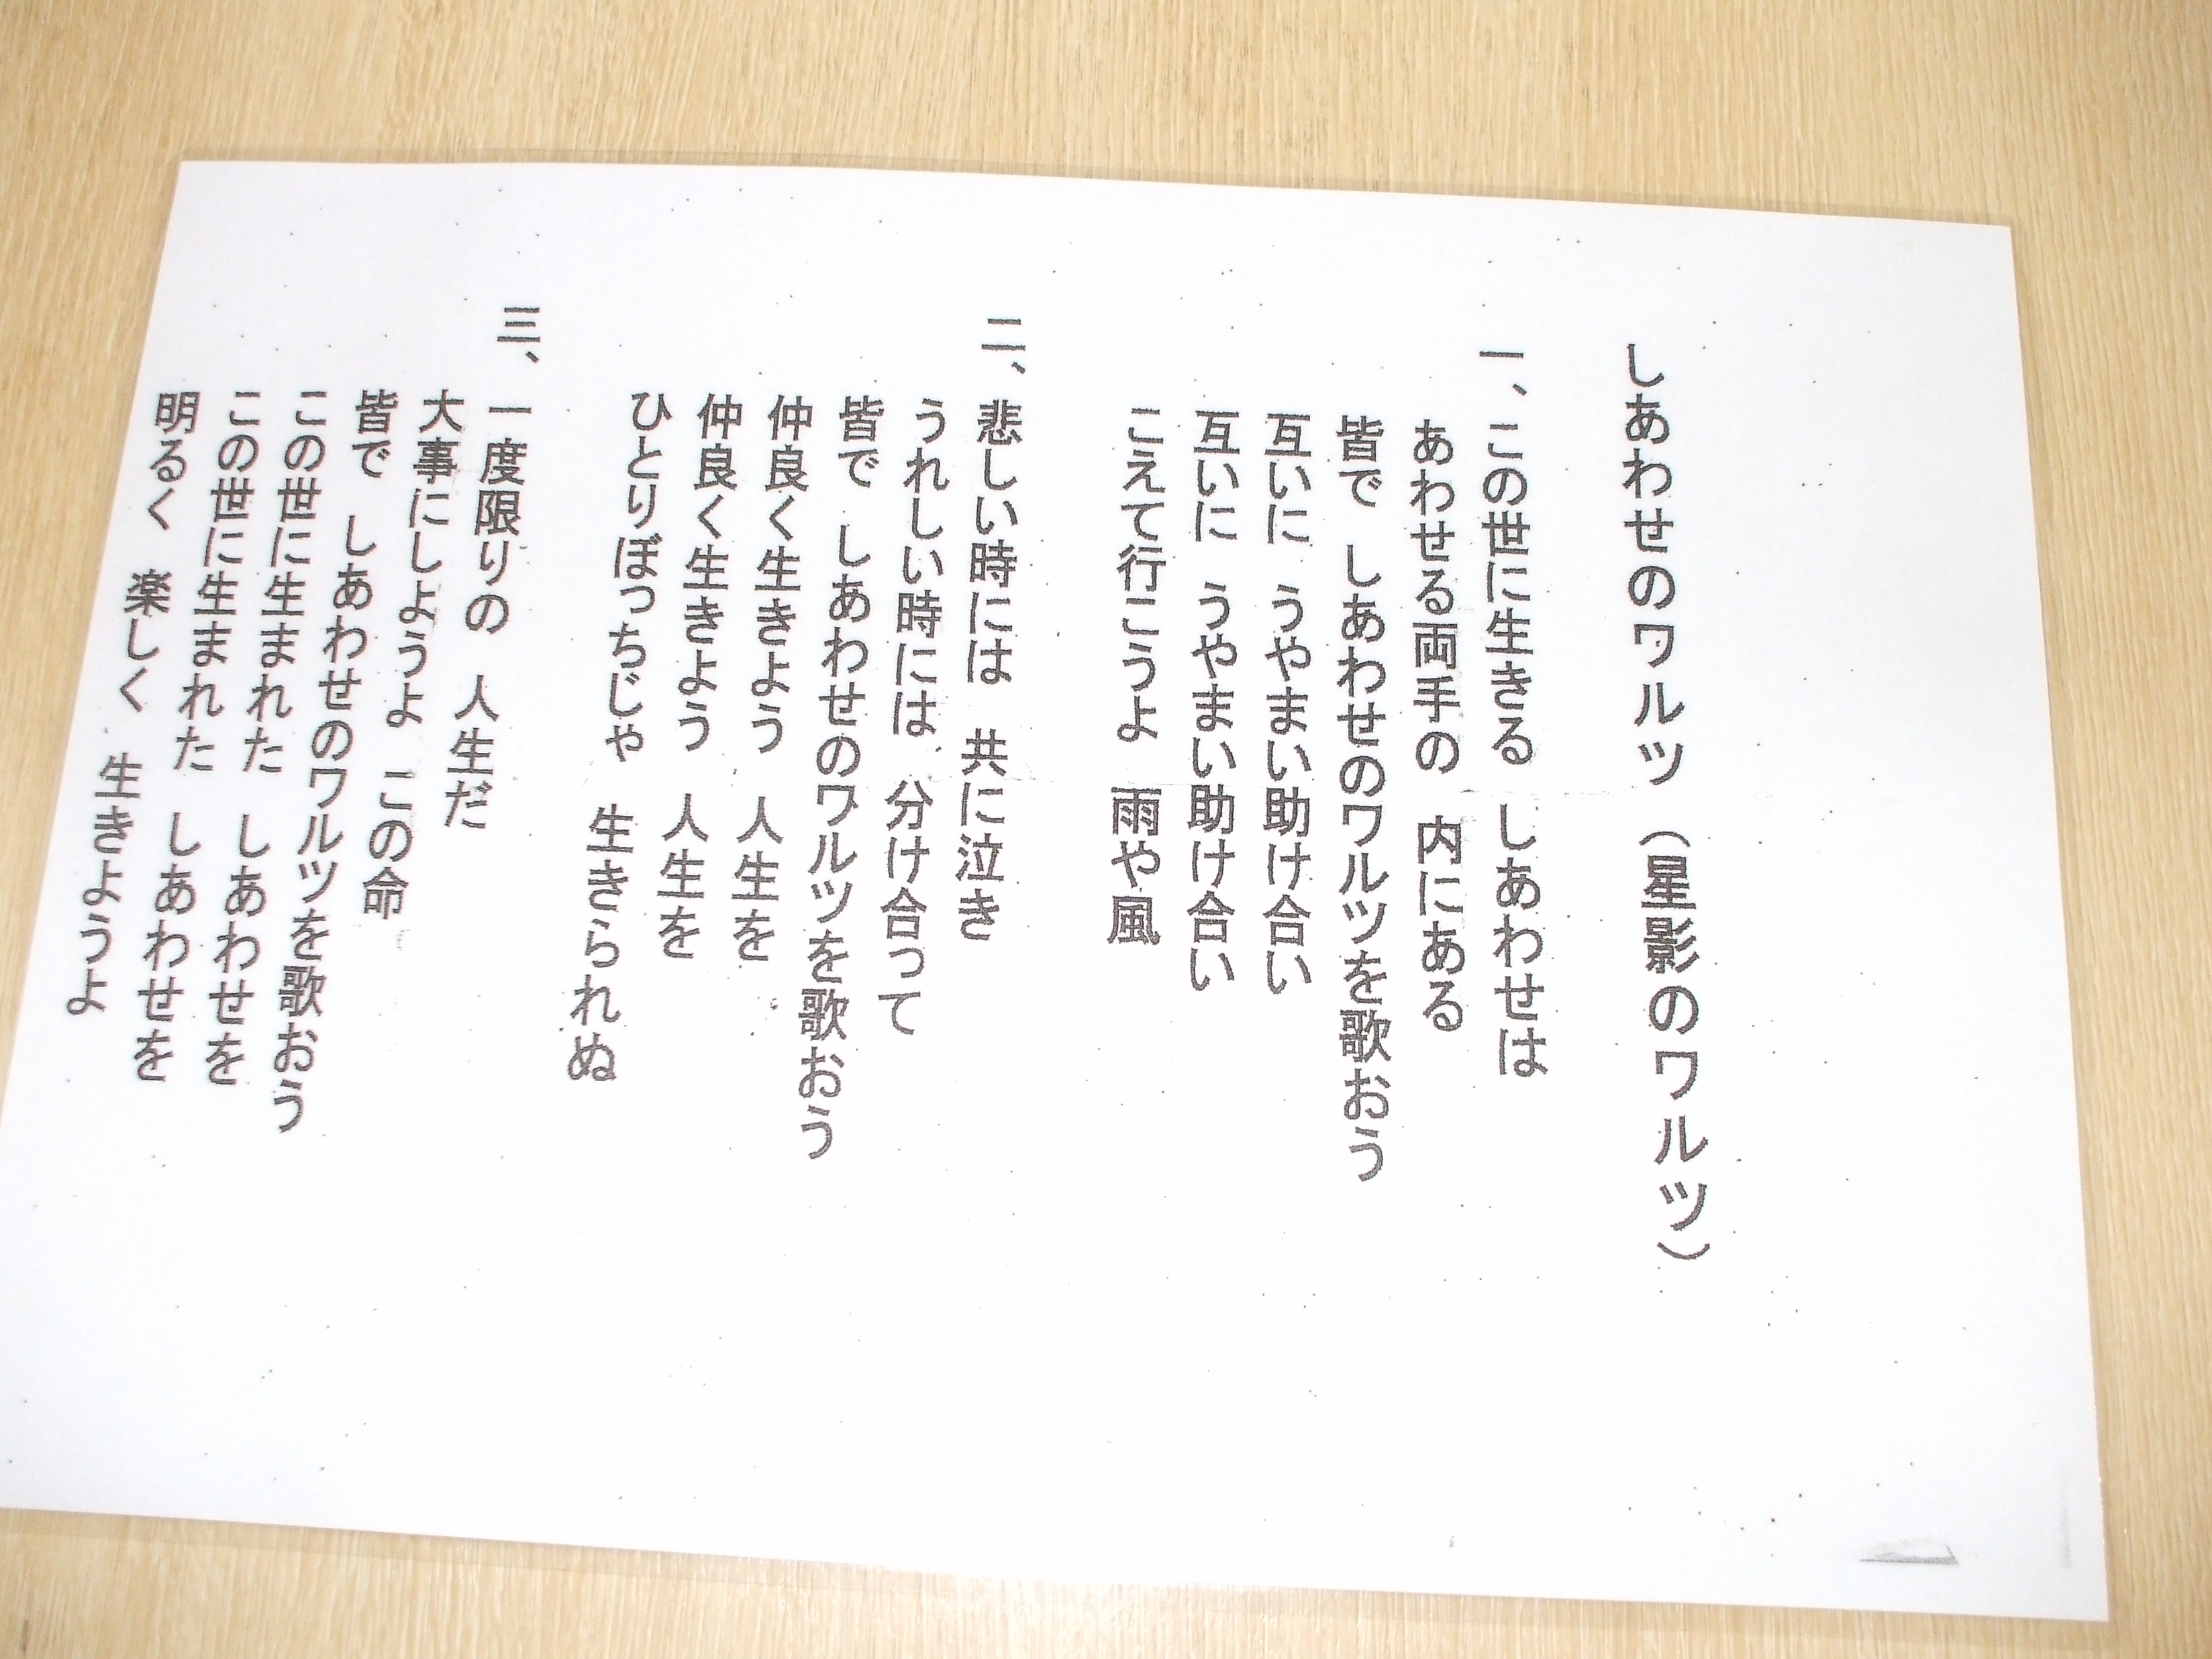 しあわせのワルツ（星影のワルツ）
一、この世に生きる　しあわせは
あわせる両手の　内にある
皆で　しあわせのワルツを歌おう
互いに　うやまい助け合い
互いに　うやまい助け合い
こえて行こうよ　雨や風
二、悲しい時には　共に泣き
うれしい時には　分け合って
皆で　しあわせのワルツを歌おう
仲良く生きよう　人生を
仲良く生きよう　人生を
ひとりぼっちじゃ　生きられぬ
三、一度限りの　人生だ
大事にしようよ　この命
皆で　しあわせのワルツを歌おう
この世に生まれた　しあわせを
この世に生まれた　しあわせを
明るく　楽しく　生きようよ